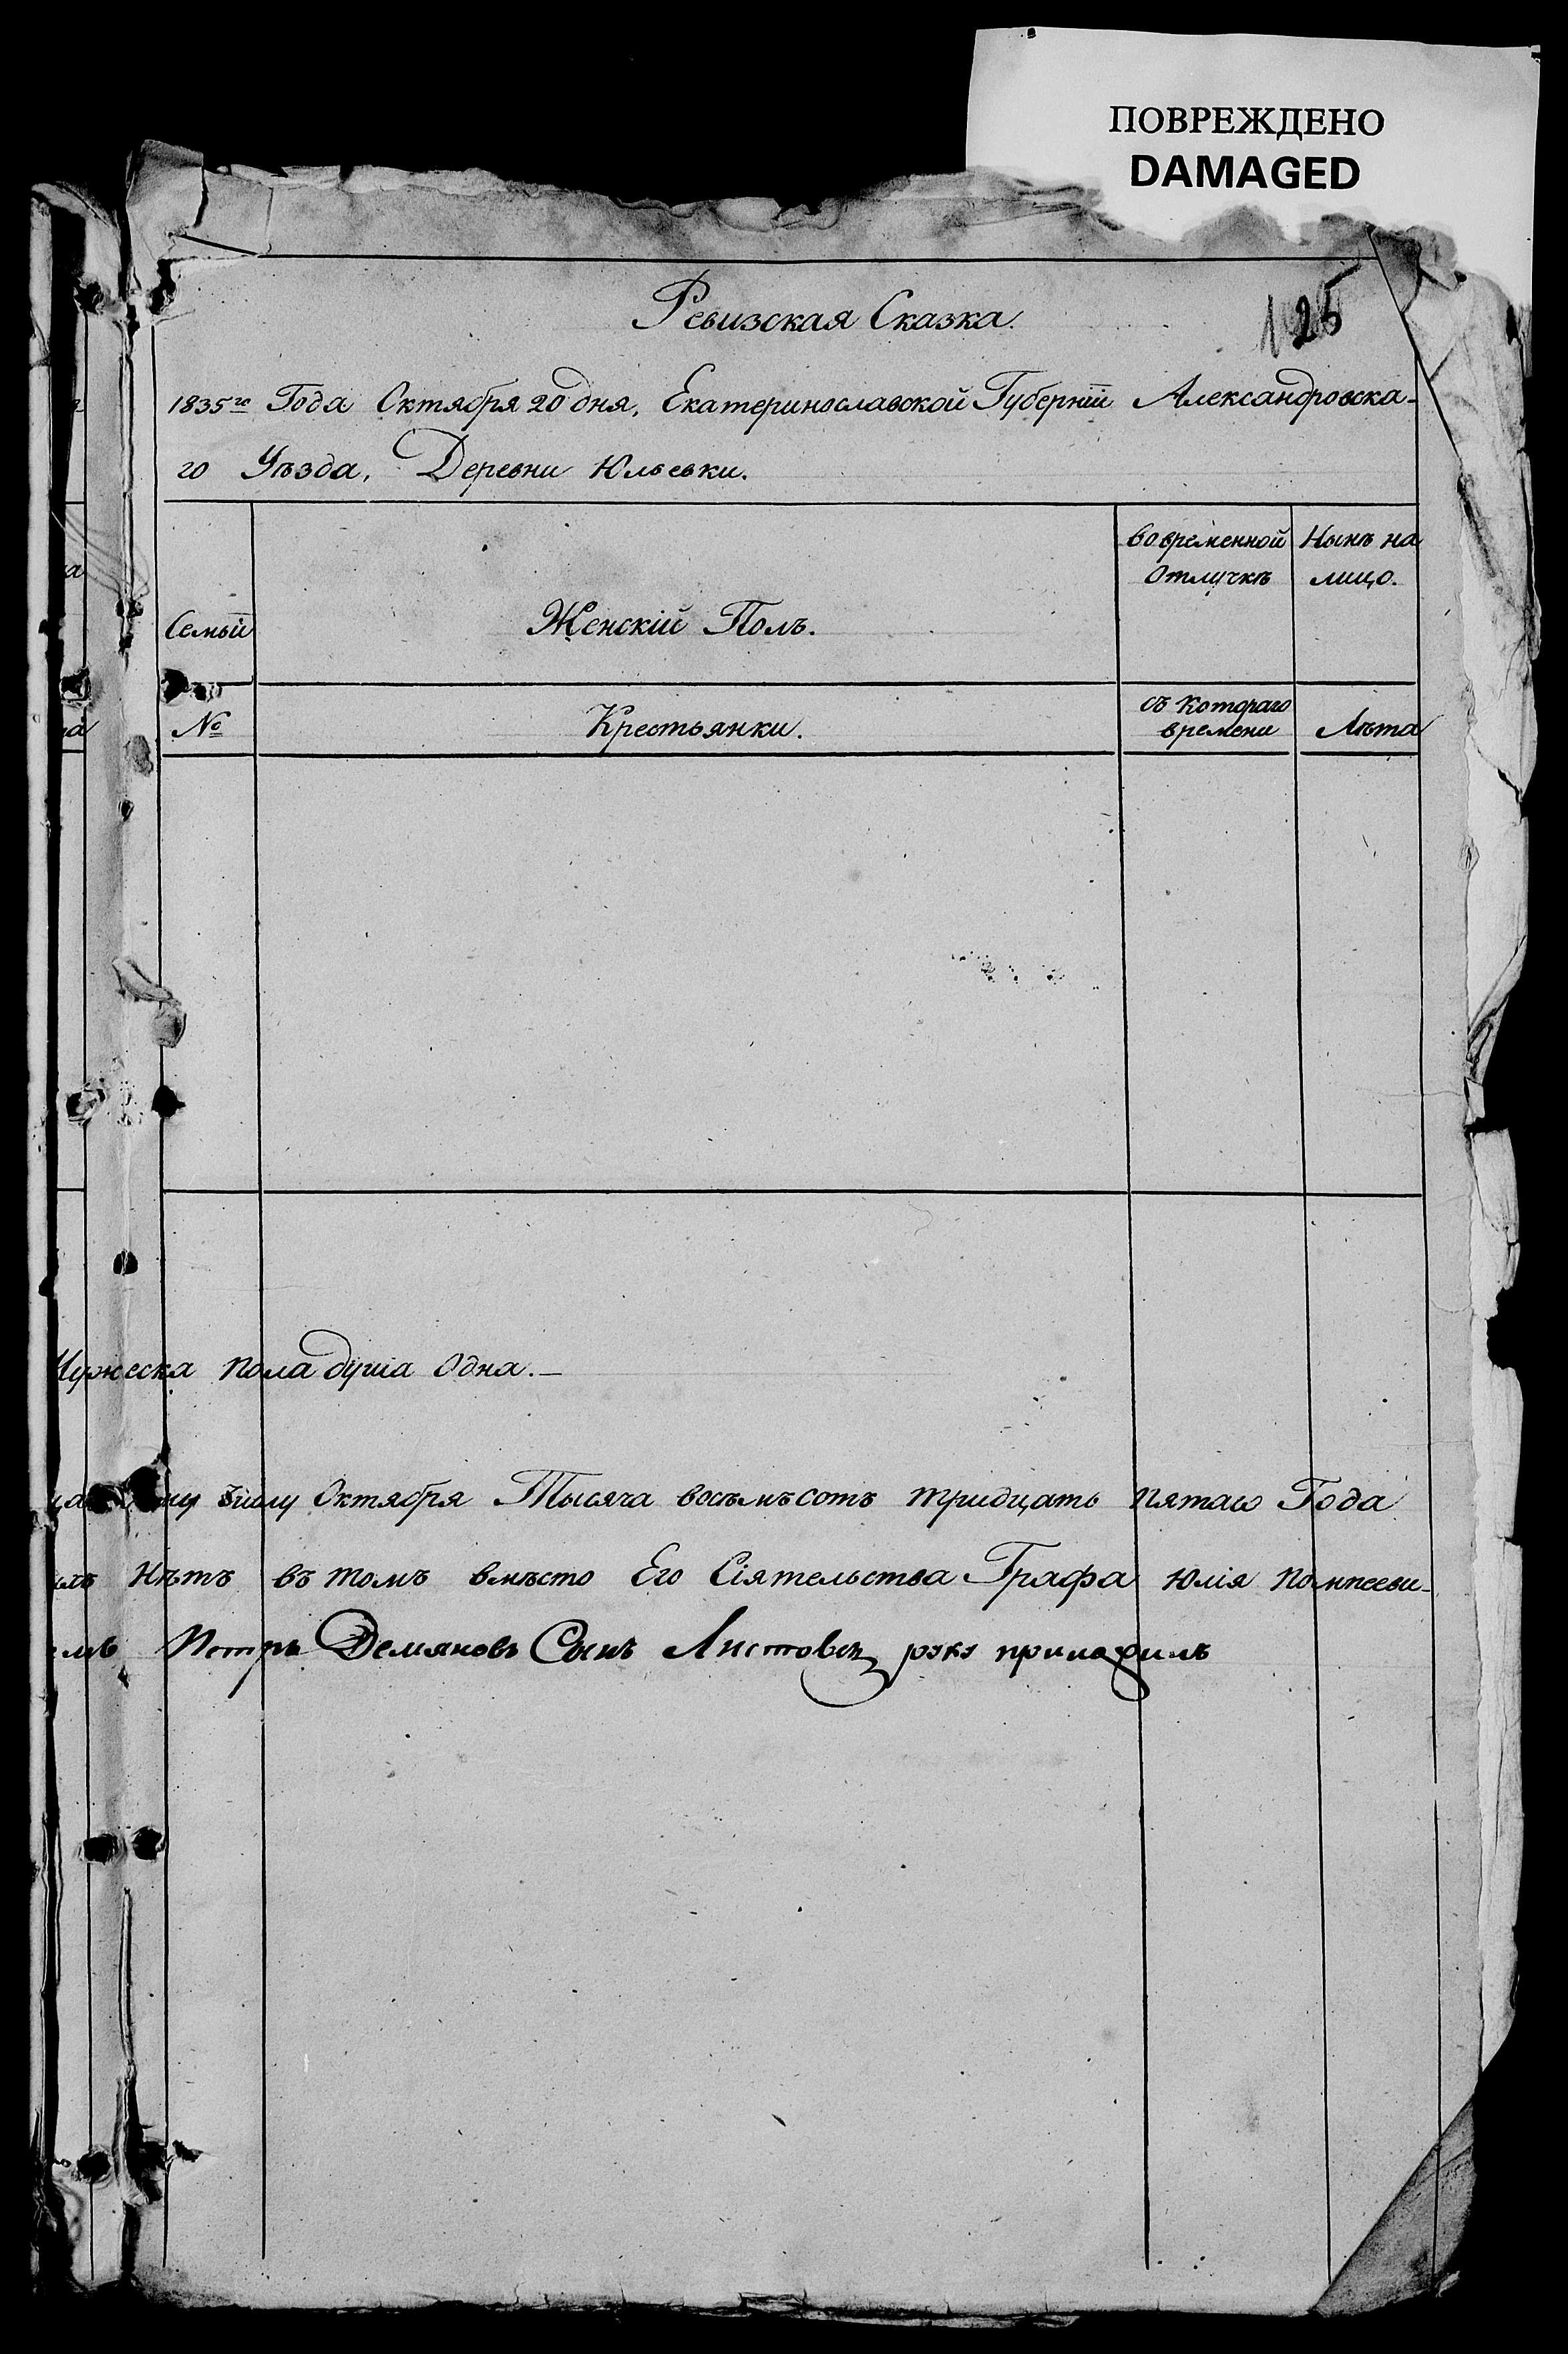 ПОВРЕЖДЕНО
DAMAGED
125
Ревизская Сказка.
1835го Года Октября 20 дня, Екатеринославской Губернїи Александровска-
го Уѣзда, Деревни Юльевки.
Семьи
Женскій Полъ.
во временной
Отлучкѣ
Нынѣ на
лицо.
№
Крестьянки.
съ котораго
времени
Лѣта
Мужеска пола душа Одна.—
числу Октября Тысяча восѣмъсотъ тридцать пятаго Года
Нѣтъ въ томъ вмѣсто Его Сіятельства Графа Юлія Помпееви-
Петръ Демяновъ Сынъ Листовъ руку приложилъ